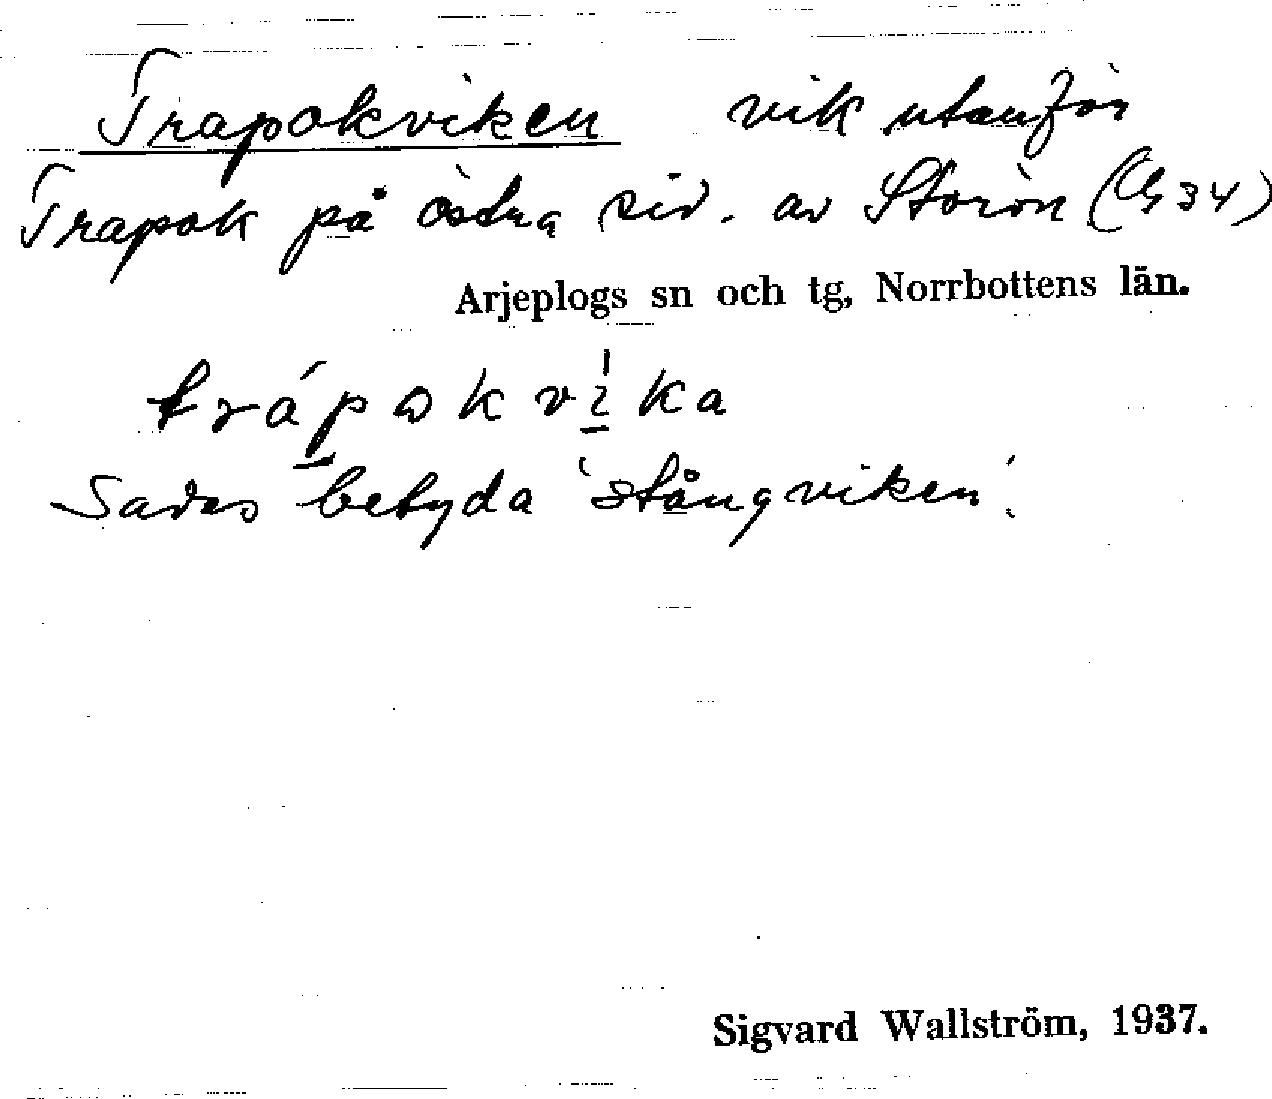 Trapokviken vik utanför
Trapok på östra sid. av Storön (G34)
Arjeplogs sn och tg, Norrbottens län.
trápokvika
Sades betyda 'stångviken'.
Sigvard Wallström, 1937.